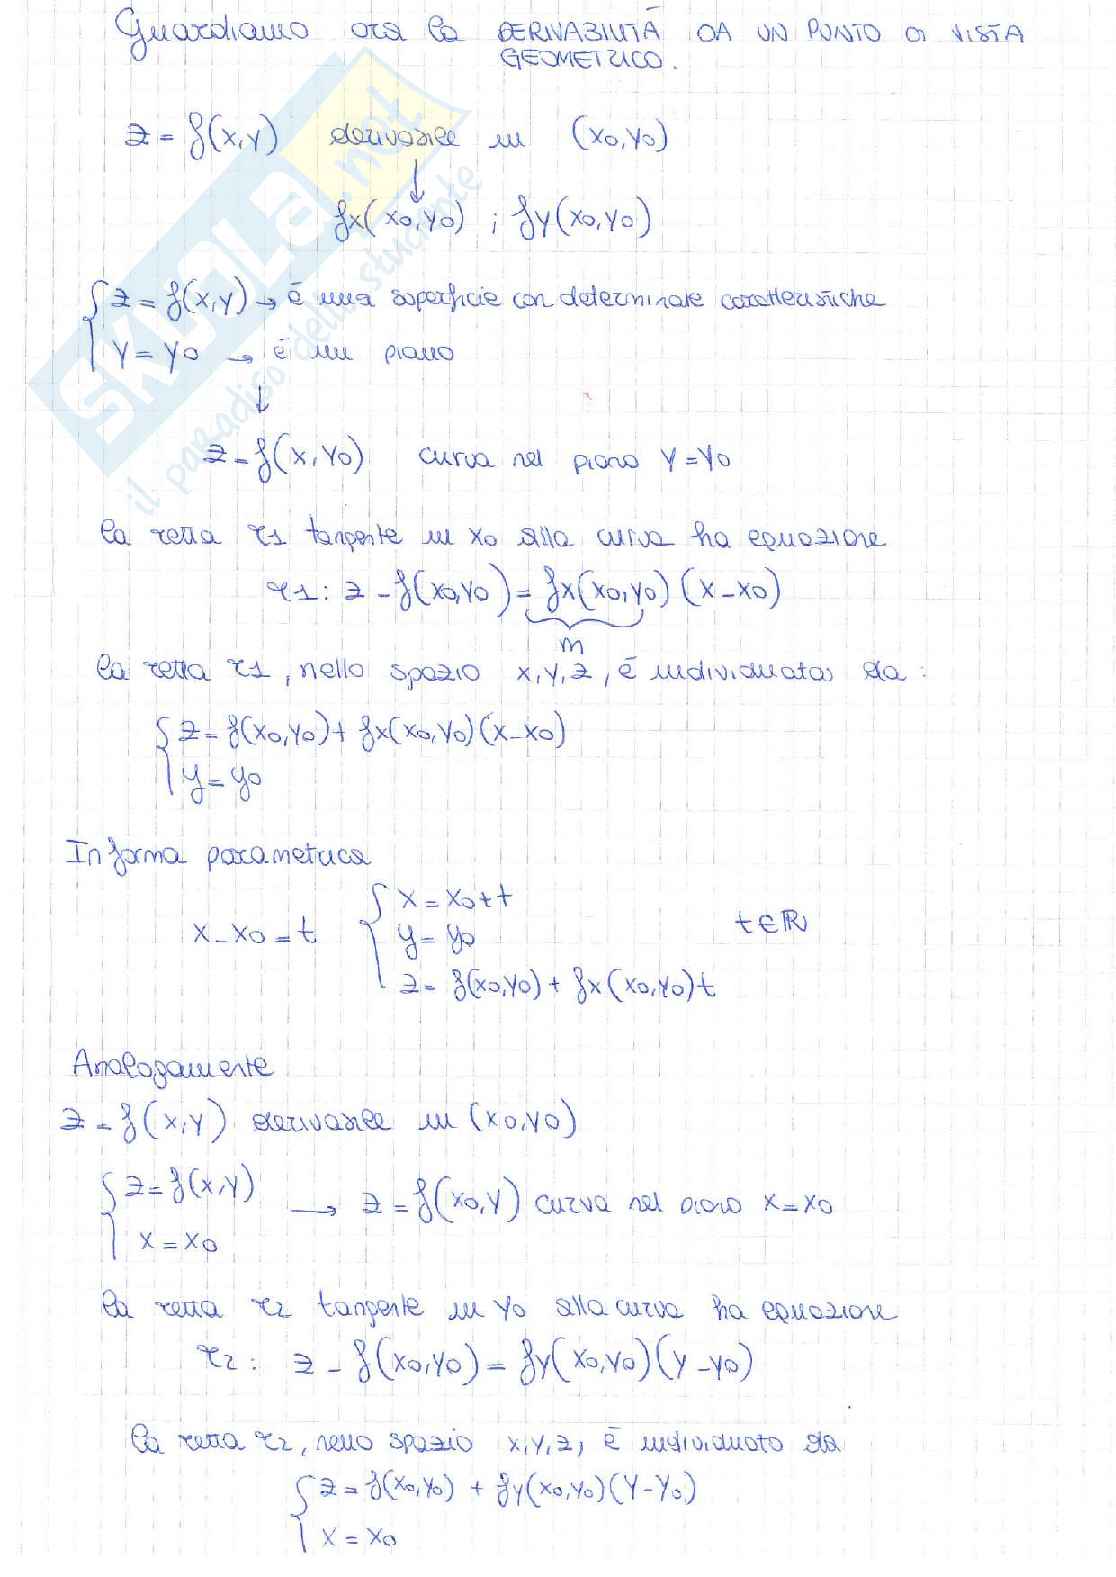 Guardiamo ora la DERIVABILITÀ DA UN PUNTO DI VISTA
GEOMETRICO.
z = f(x,y) derivabile in (x0,y0)
↓
fx(x0,y0) ; fy(x0,y0)
{ z = f(x,y) → è una superficie con determinate caratteristiche
y = y0 → è un piano
↓
z = f(x,y0) curva nel piano y = y0
la retta r1 tangente in x0 alla curva ha equazione
r1: z - f(x0,y0) = fx(x0,y0) (x - x0)
m
la retta r1, nello spazio x,y,z, è individuata da:
{ z = f(x0,y0) + fx(x0,y0)(x-x0)
y = y0
In forma parametrica
x - x0 = t { x = x0 + t
y = y0 t∈ℝ
z = f(x0,y0) + fx(x0,y0)t
Analogamente
z = f(x,y) derivabile in (x0,y0)
{ z = f(x,y)
→ z = f(x0,y) curva nel piano x = x0
x = x0
la retta r2 tangente in y0 alla curva ha equazione
r2: z - f(x0,y0) = fy(x0,y0)(y - y0)
la retta r2, nello spazio x,y,z, è individuato da
{ z = f(x0,y0) + fy(x0,y0)(y-y0)
x = x0
SKUOLA.net
il paradiso dello studente